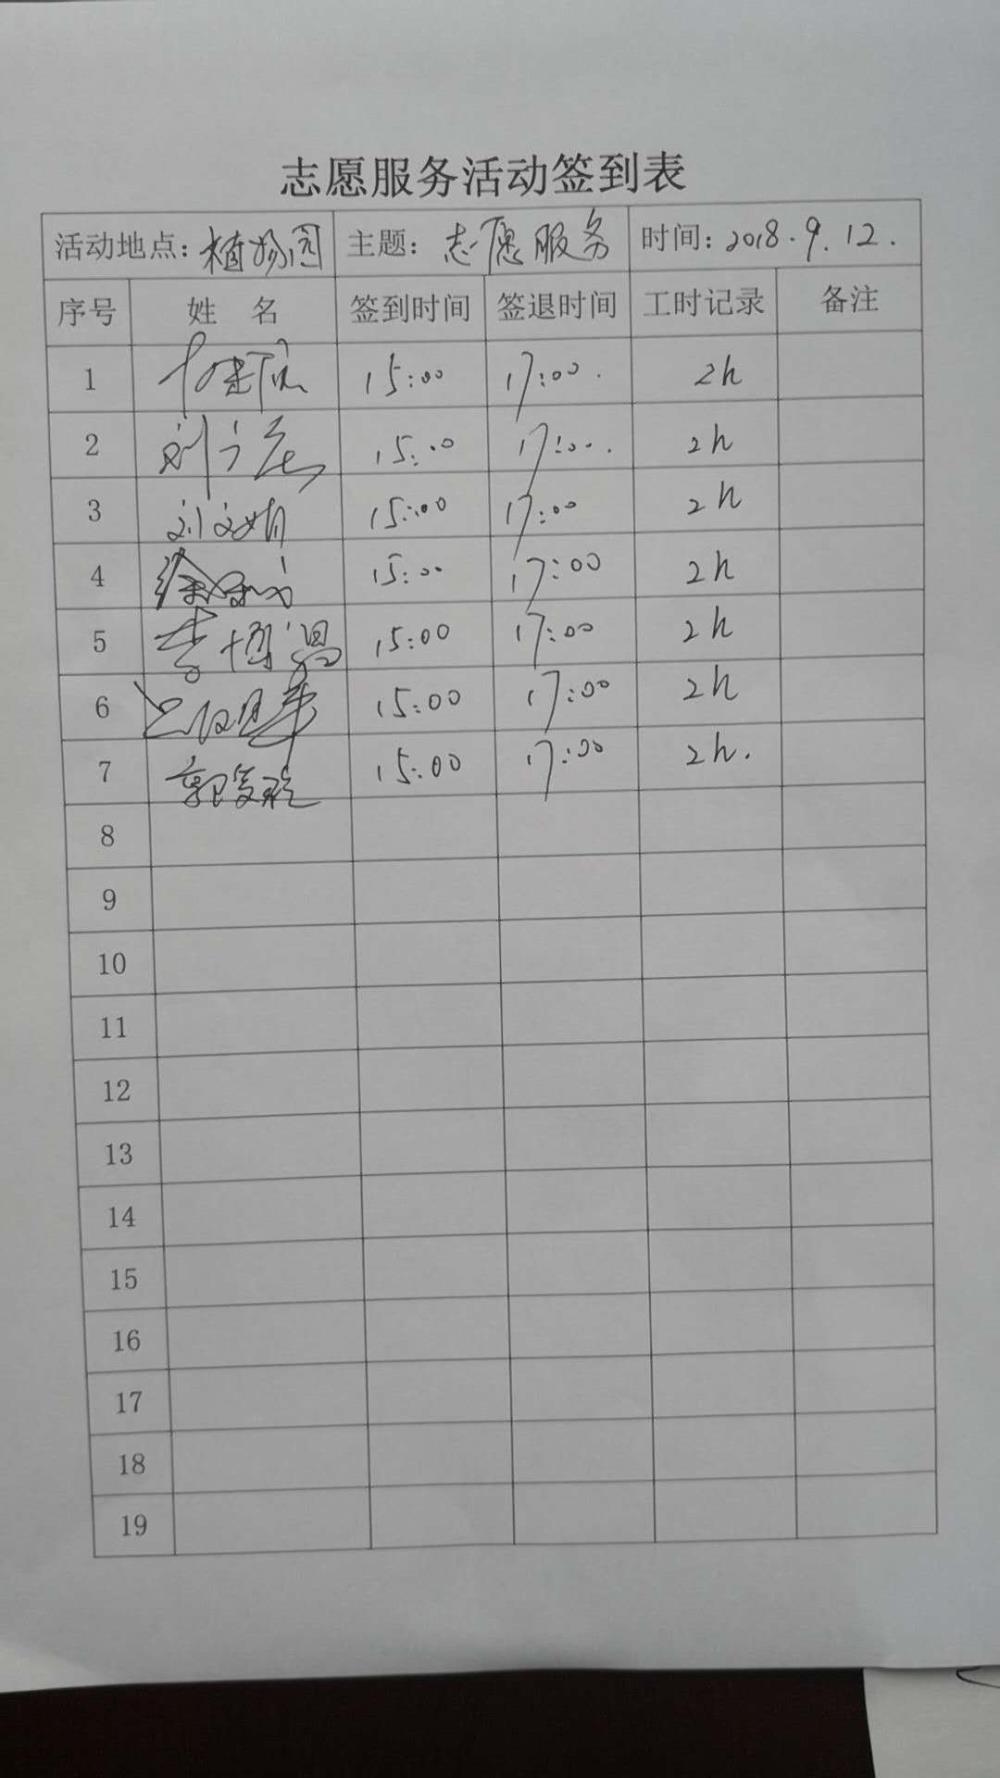 志愿服务活动签到表
活动地点：植物园 主题：志愿服务 时间：2018.9.12.
序号 姓 名 签到时间 签退时间 工时记录 备注
1 15:00 17:00. 2h
2 刘广 15:00 17:00. 2h
3 刘文娟 15:00 17:00 2h
4 徐 15:00 17:00 2h
5 李博涓 15:00 17:00 2h
6 15:00 17:00 2h
7 郭 15:00 17:00 2h.
8
9
10
11
12
13
14
15
16
17
18
19